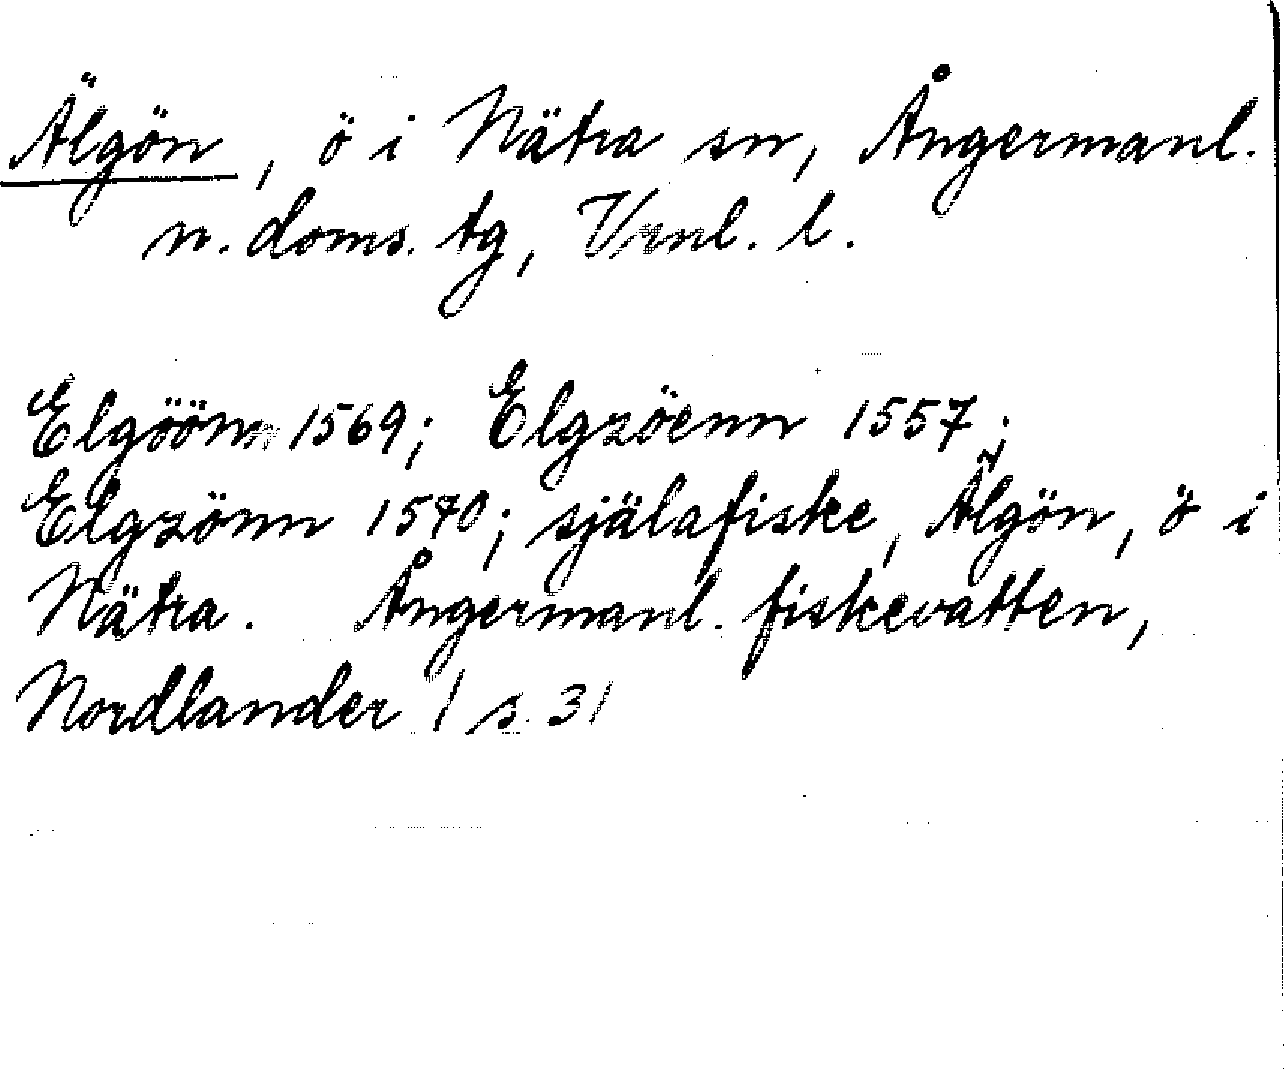 Älgön, ö i Nätra sn, Ångermanl.
n. doms. tg, Vrnl. l.
Elgöönn 1569; Elgzöenn 1557;
Elgzönn 1570; själafiske, Älgön, ö i
Nätra. Ångermanl. fiskevatten,
Nordlander / s. 31